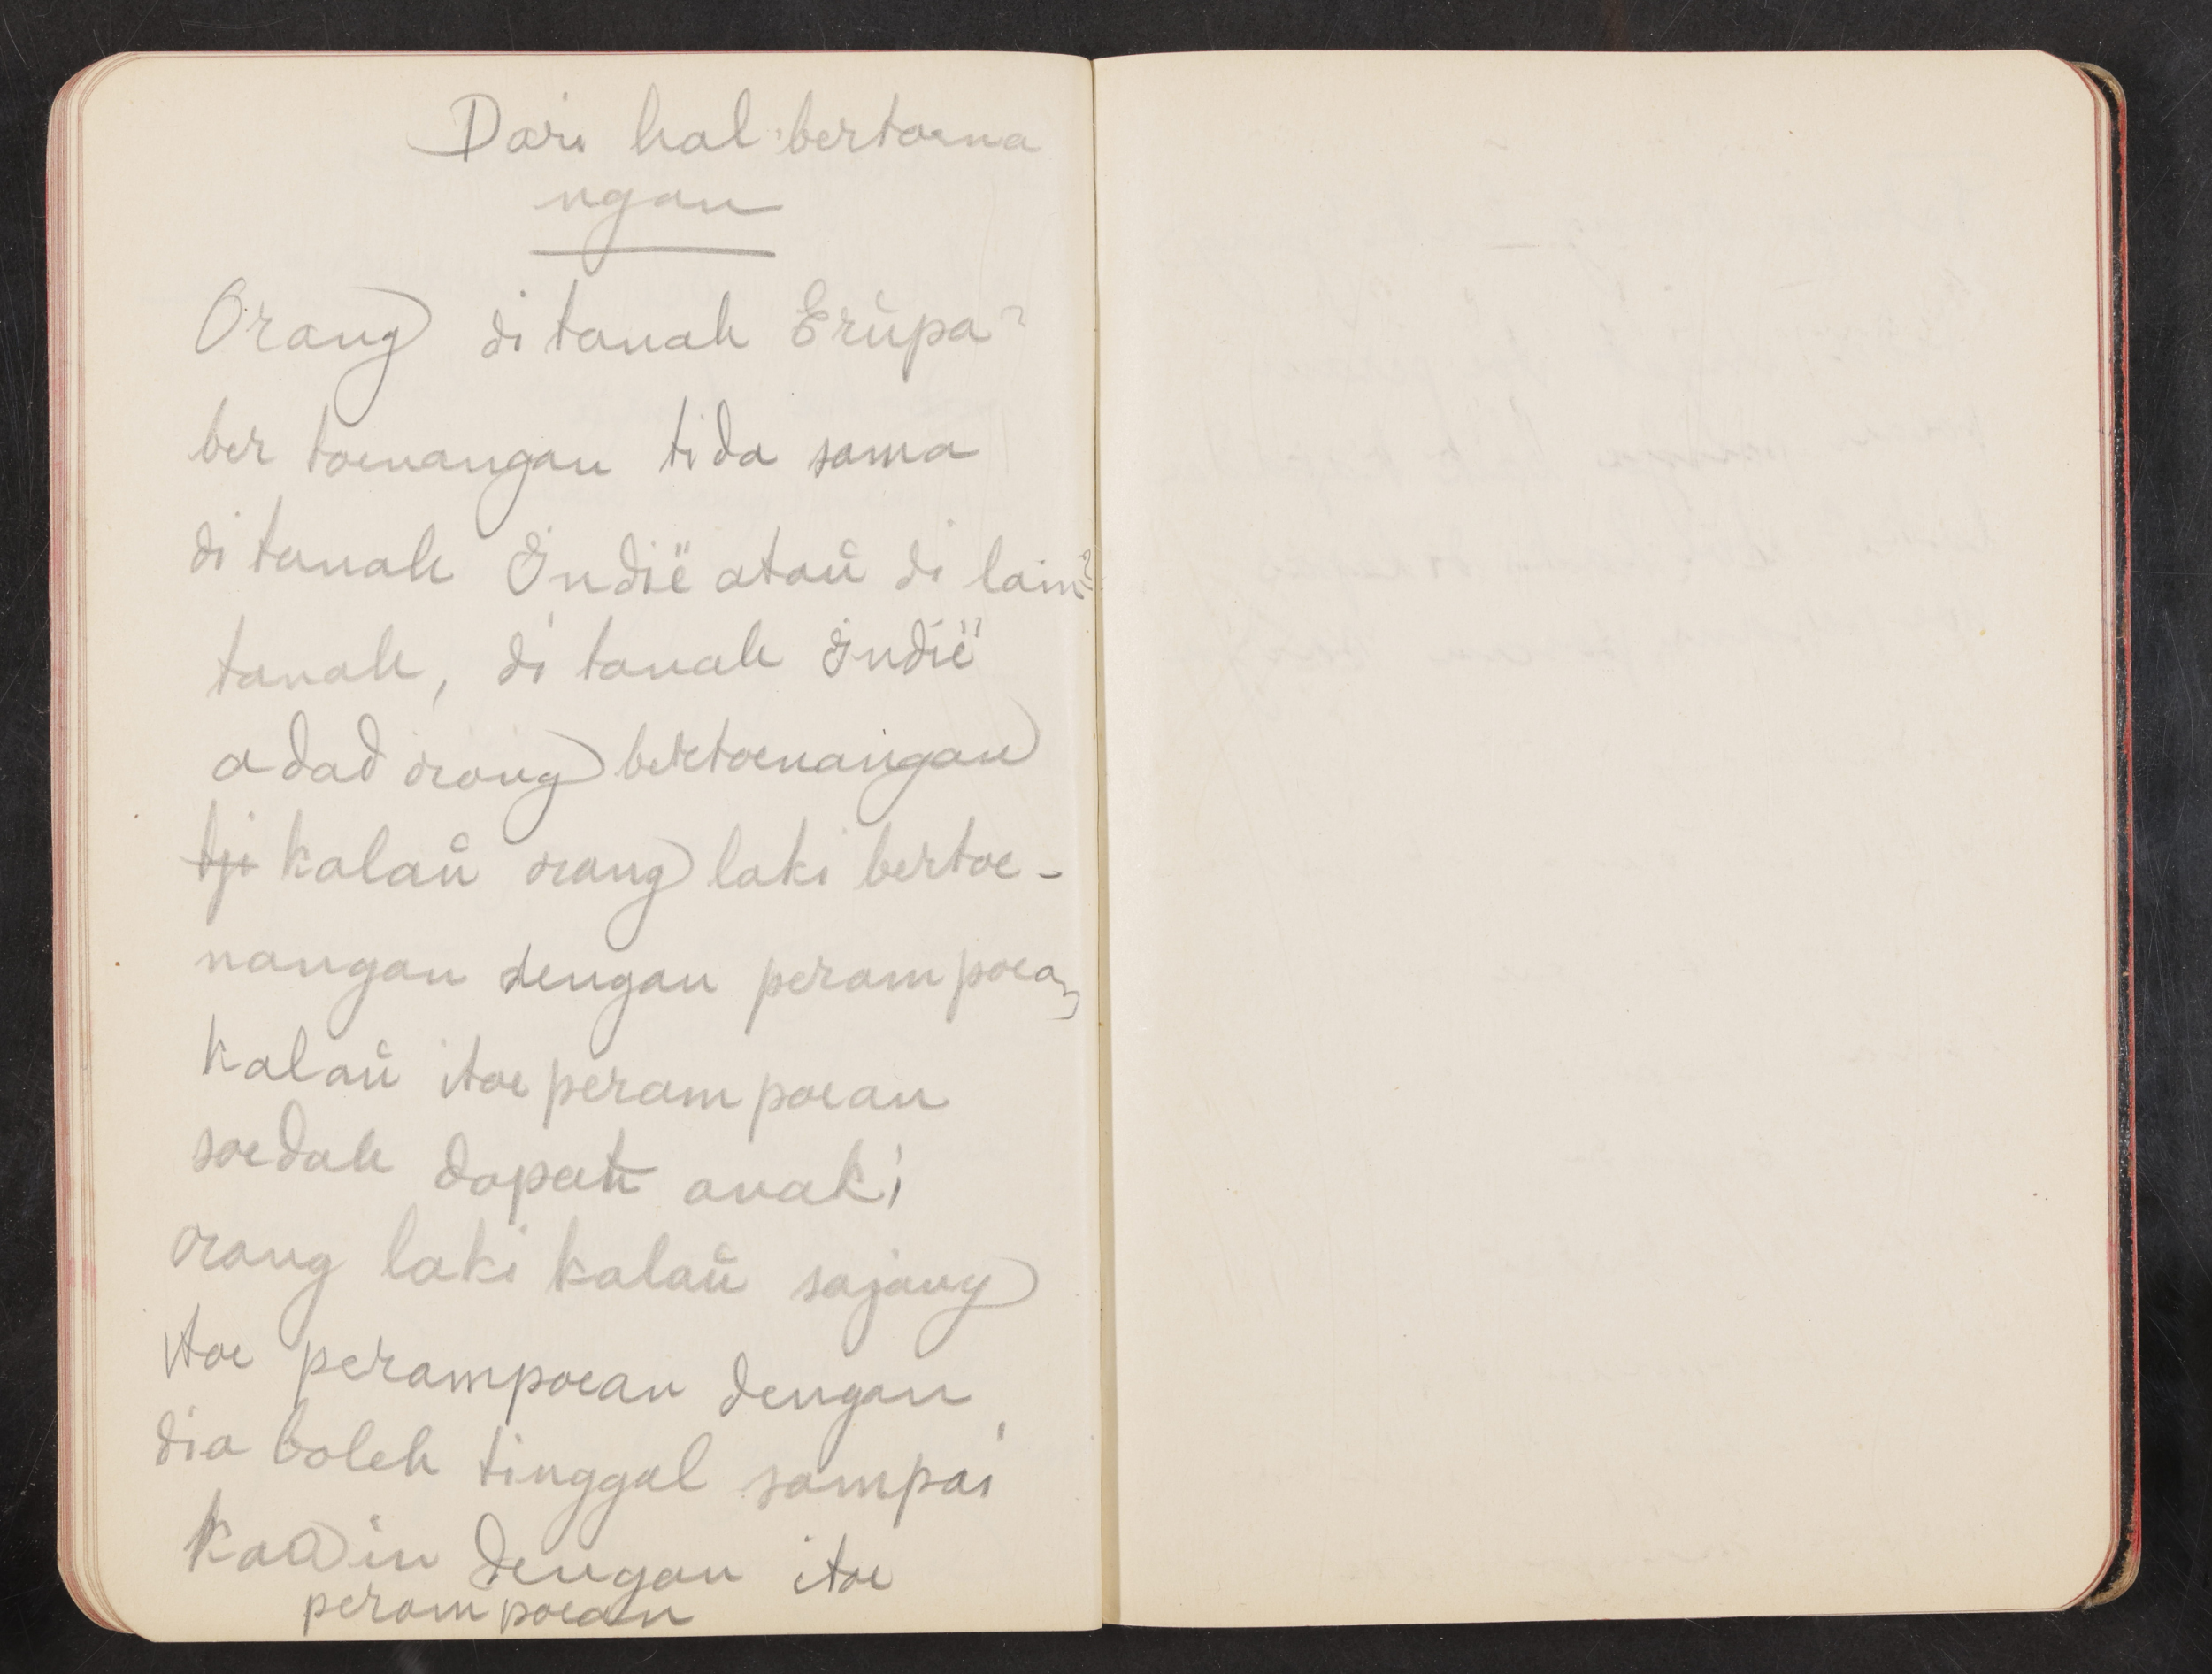 Dari hal bertoena
ngan
Orang di tanah Erŭpa²
ber toenangan tida sama
di tanah Indië ataŭ di lain²
tanah, di tanah Indië
adad orang bertoenangan
tji kalaŭ orang laki bertoe-
nangan dengan perampoean
kalaŭ itoe perampoean
soedah dapat anak;
orang laki kalaŭ sajang
itoe perampoean dengan
dia boleh tinggal sampai
kawin dengan itoe
perampoean